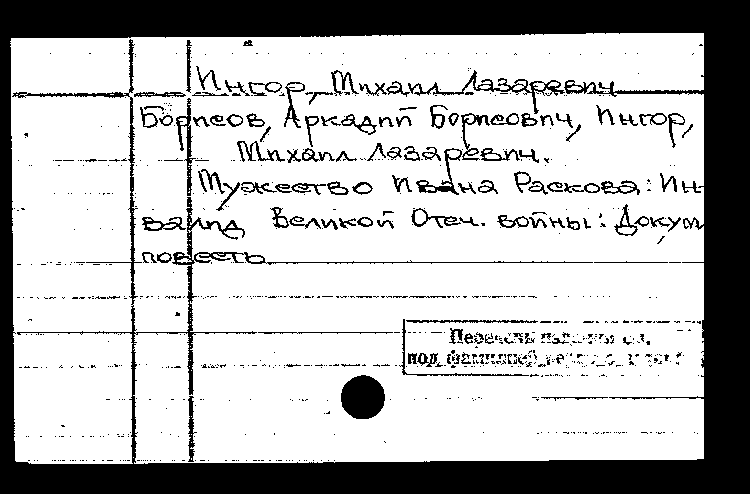 Ингор, Михаил Лазаревич
Борисов, Аркадий Борисович, Ингор,
Михаил Лазаревич.
Мужество Ивана Раскова: Ин-
валид Великой Отеч. войны: Докум
повесть.
Перечень
под фамилией